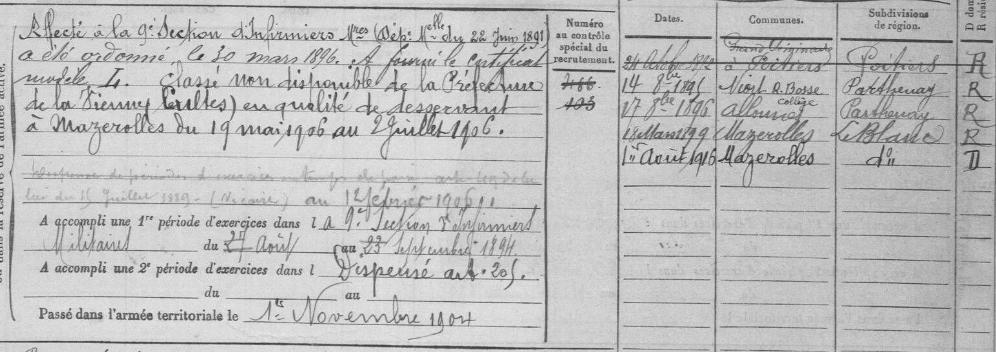 Affecté à la 9e Section d'Infirmiers Mres (Dép. Melle du 22 Juin 1891
a été ordonné, le 30 mars 1896. A fourni le certificat
modèle L. Classé non disponible de la Préfecture
de la Vienne (Cultes) en qualité de desservant
à Mazerolles du 19 mai 1906 au 2 Juillet 1906.
Dispense de période d'exercices
loi du 15 Juillet 1889 - (Vicaire) au 12 février 1906
A accompli une 1re période d'exercices dans l a 9e Section d'Infirmiers
Militaires du 27 Août au 23 Septembre 1894.
A accompli une 2e période d'exercices dans l Dispensé art. 205.
du au
Passé dans l'armée territoriale le 1er Novembre 1904
Numéro
au contrôle
spécial du
recrutement.
195
Dates. Communes. Subdivisions
de région.
D dom
R rési
Grand Séminaire
à Poitiers Poitiers R
14 8bre 1895 Niort R. Basse Parthenay R
collège
17 8bre 1896 Parthenay R
Mars 1899 Mazerolles Le Blanc R
1er Août 1916 Mazerolles do D
ou dans la réserve de l'armée active.